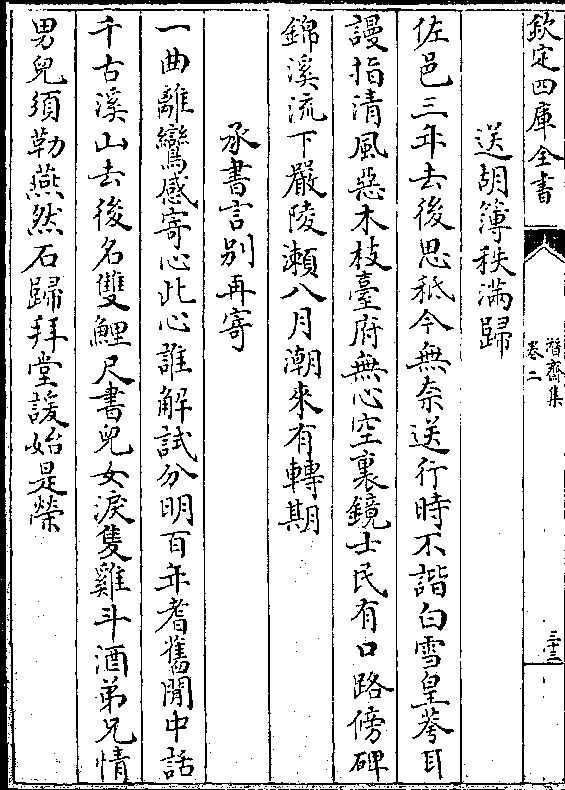 欽定四庫全書
潛齋集
卷二
三十三
送胡簿秩滿歸
佐邑三年去後思秪今無奈送行時不諧白雪皇荂耳
謾指清風惡木枝臺府無心空裏鏡士民有口路傍碑
錦溪流下嚴陵瀬八月潮來有轉期
承書言别再寄
一曲離鸞感寄心此心誰解試分明百年耆舊閒中話
千古溪山去後名雙鯉尺書兒女淚隻雞斗酒弟兄情
男兒須勒燕然石歸拜堂諼始是榮